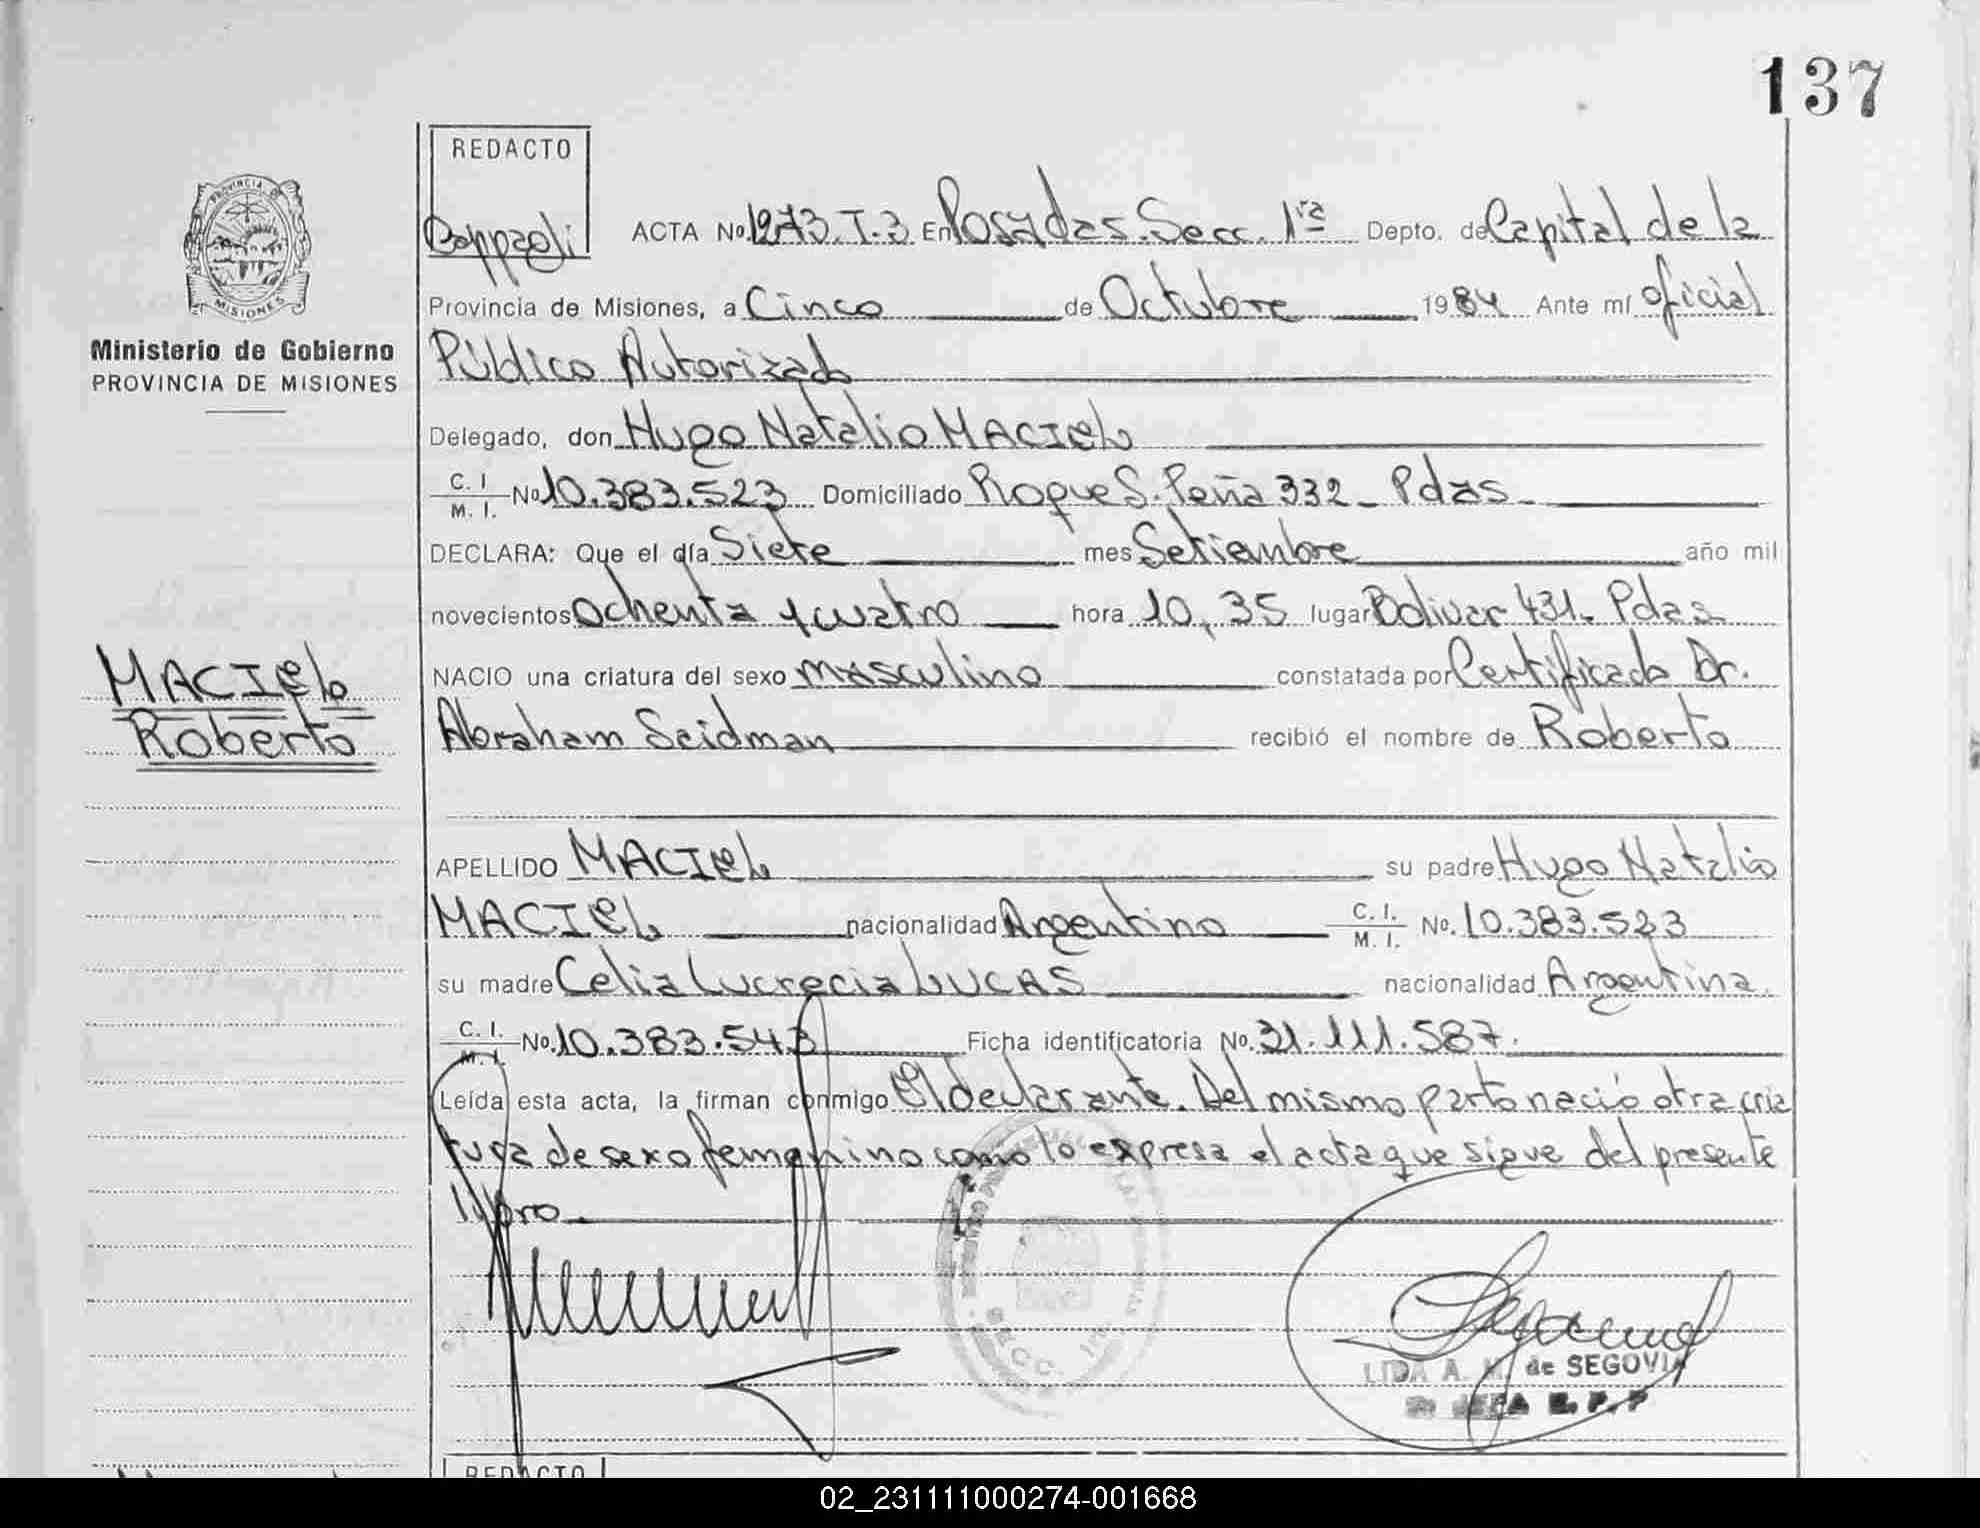 137
REDACTO
Coppaoli
ACTA No. 1273. T-3 En Posadas. Secc. 1ra Depto. de Capital de la
Provincia de Misiones, a Cinco de Octubre 1984 Ante mí oficial
Público Autorizado
Delegado, don Hugo Natalio MACIEL
C. I. M. I. No 10.383.523 Domiciliado Roque S. Peña 332 - Pdas -
DECLARA: Que el día Siete mes Setiembre año mil
novecientos ochenta y cuatro hora 10,35 lugar Bolivar 431. Pdas
NACIO una criatura del sexo masculino constatada por Certificado Dr.
Abraham Seidman recibió el nombre de Roberto
APELLIDO MACIEL su padre Hugo Natalio
MACIEL nacionalidad Argentino C. I. M. I. No. 10.383.523
su madre Celia Lucrecia LUCAS nacionalidad Argentina.
C. I. M. I. No. 10.383.543 Ficha identificatoria No. 31.111.587.
Leída esta acta, la firman conmigo El declarante. Del mismo parto nació otra cria
tura de sexo femenino como lo expresa el acta que sigue del presente
libro.
PROVINCIA DE
MISIONES
Ministerio de Gobierno
PROVINCIA DE MISIONES
MACIEL
Roberto
SECC. 1ra
LIDA A. M. de SEGOVIA
JEFA R. P. P
REDACTO
02_231111000274-001668